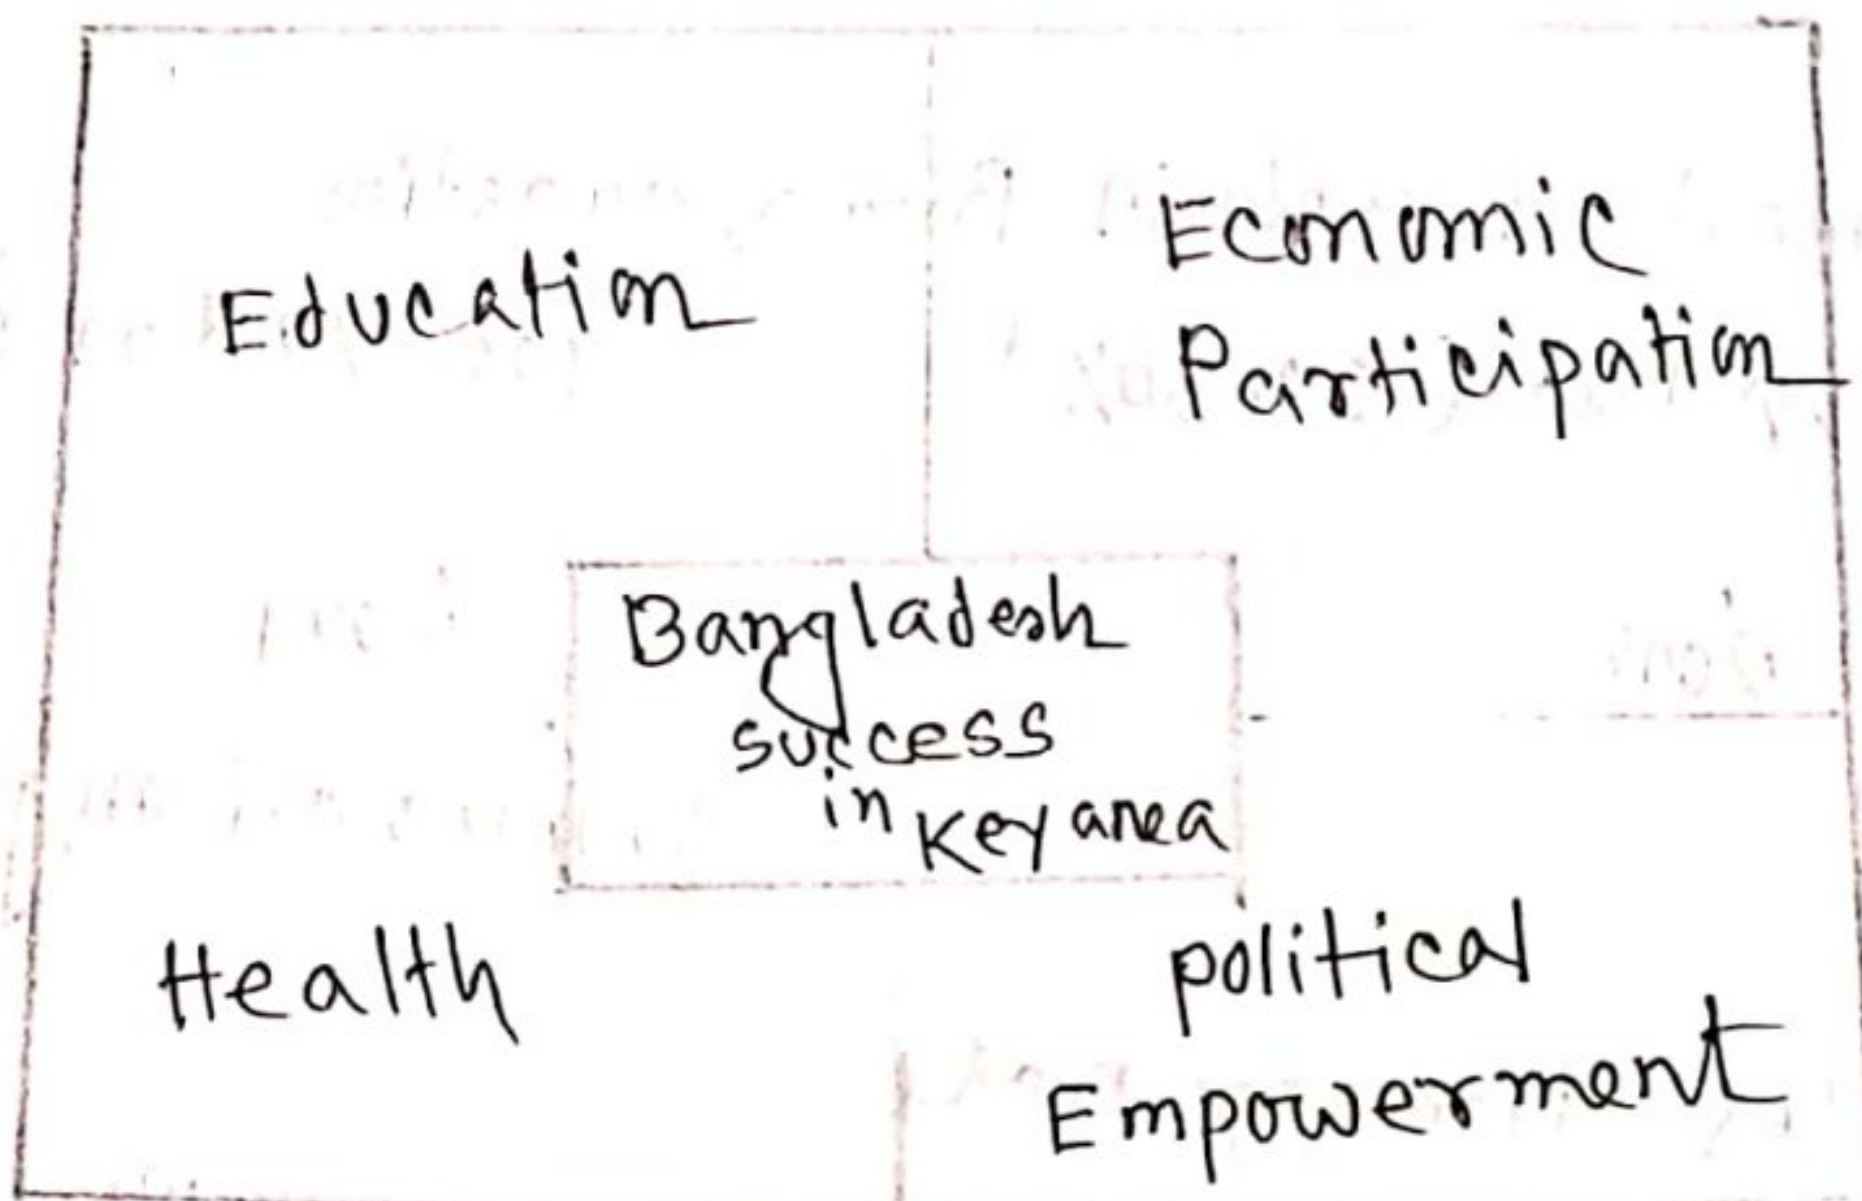 Education
Economic
Participation
Bangladesh
success
in key area
Health
political
Empowerment